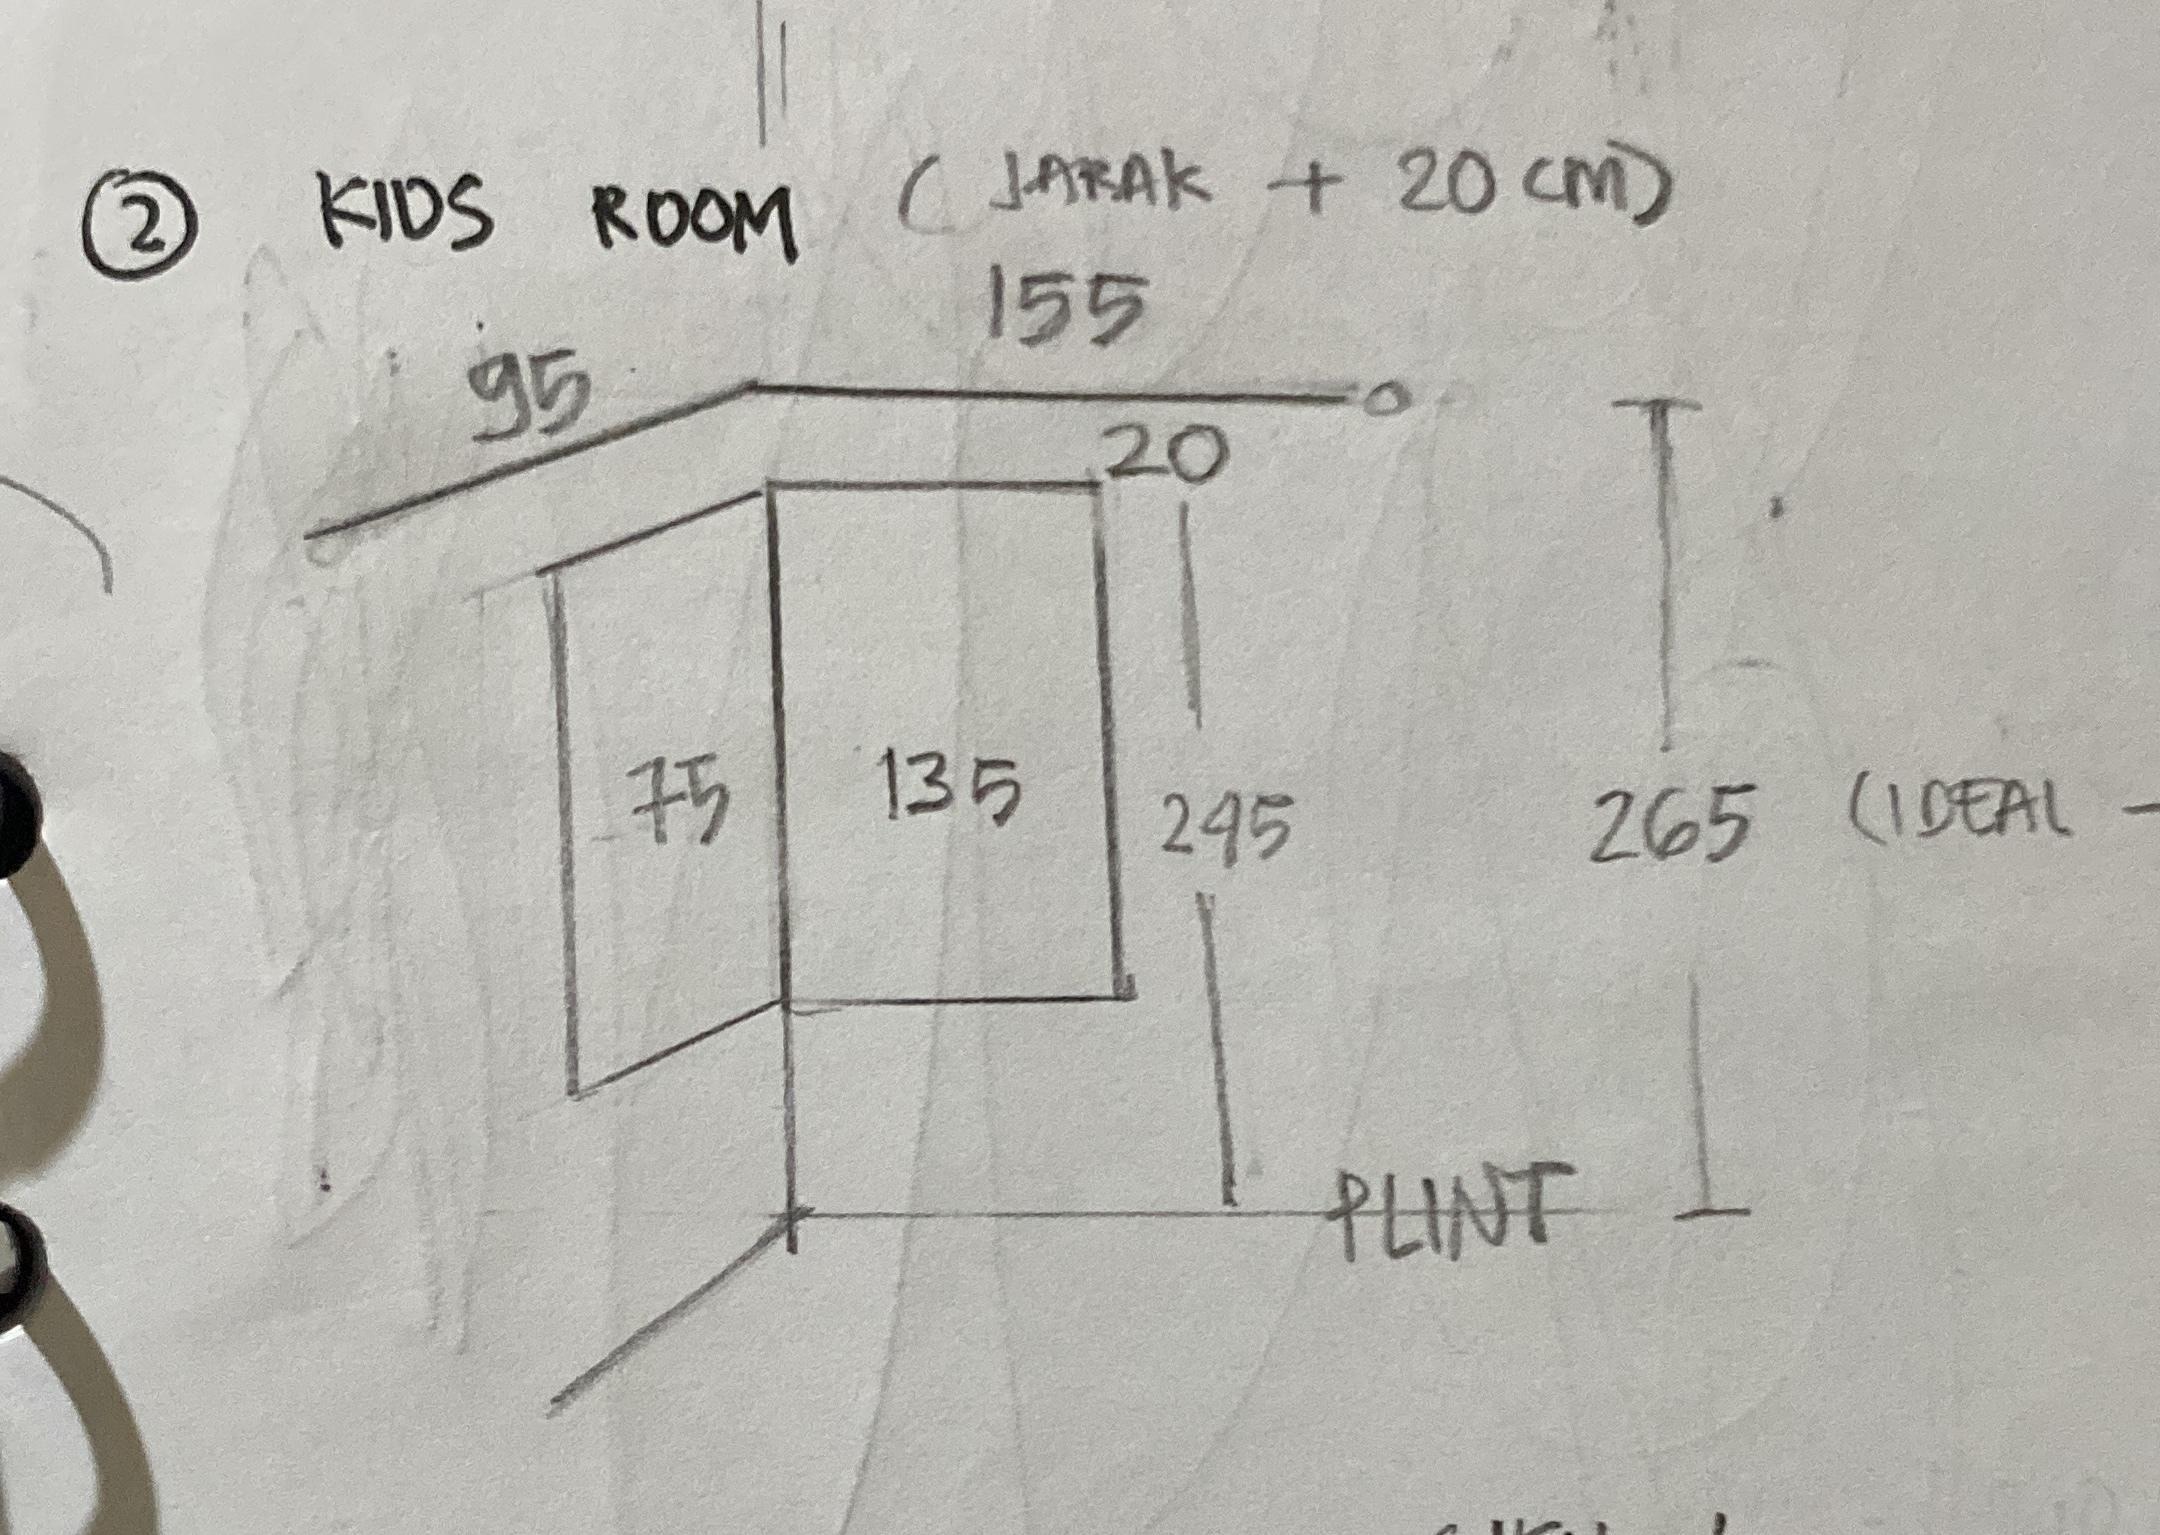 2 KIDS ROOM (JARAK + 20 CM)
155
95
20
75 135 245 265 (IDEAL -
PLINT